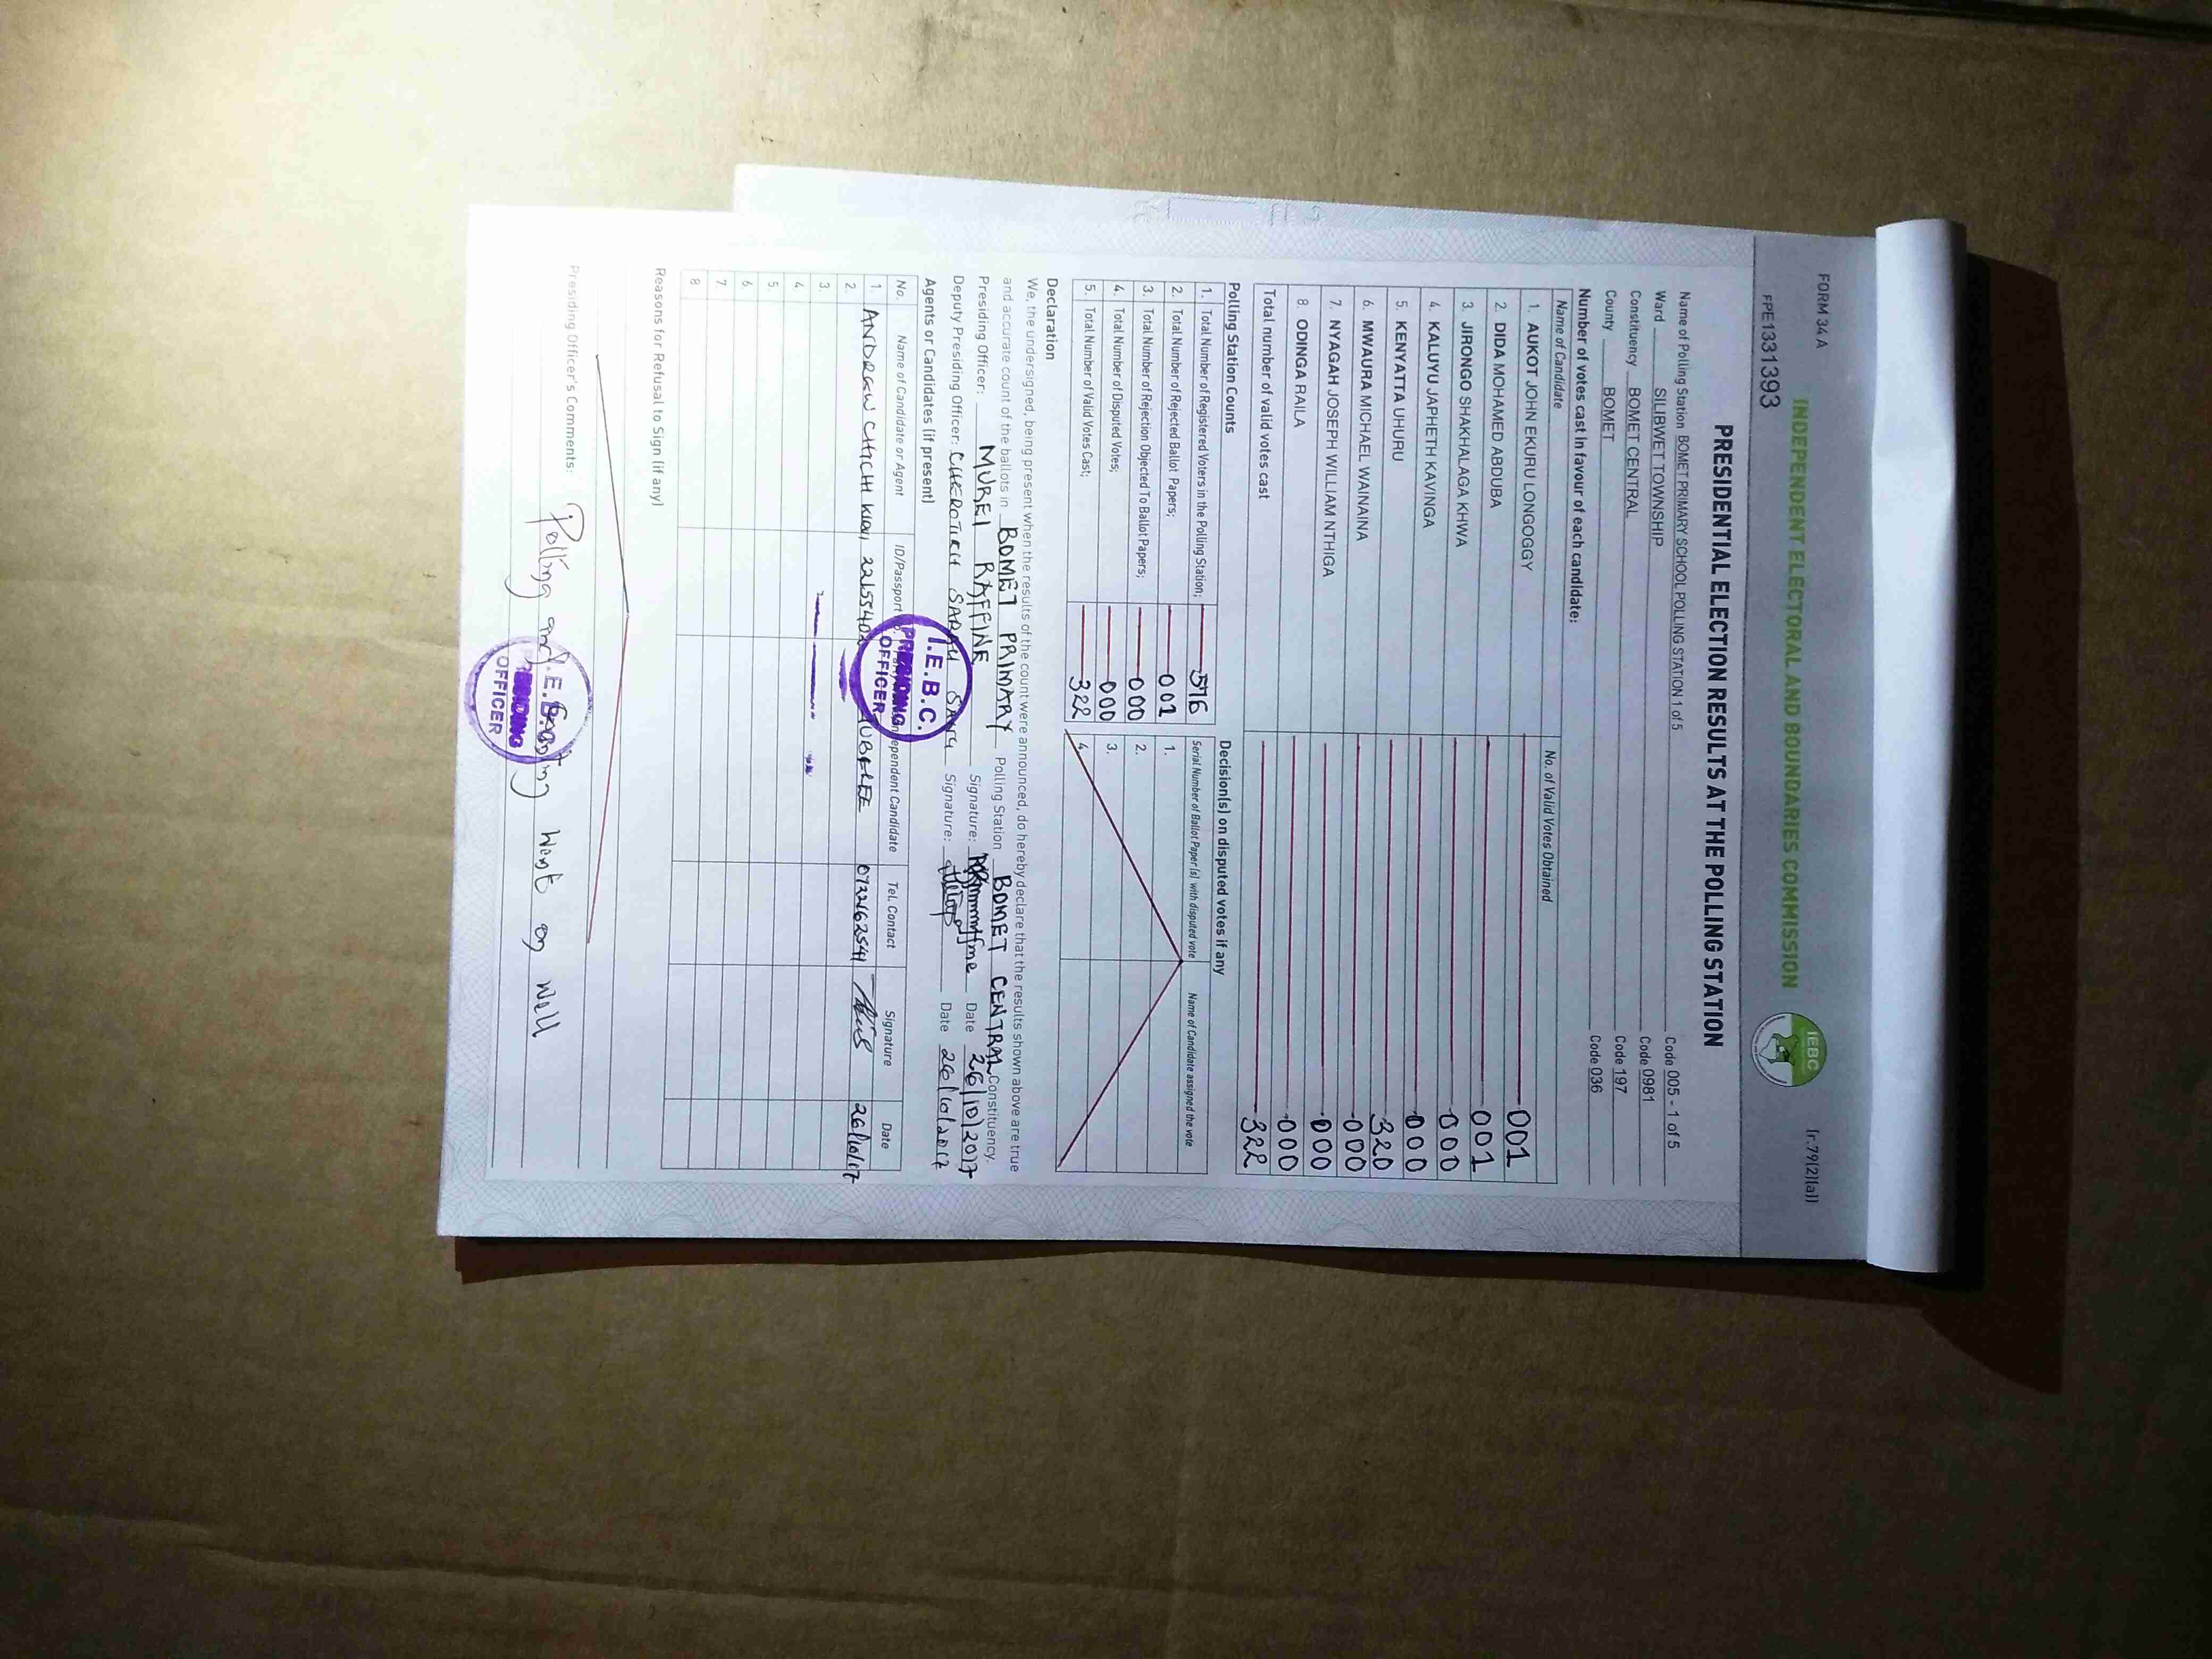 FORM 34A
INDEPENDENT ELECTORAL AND BOUNDARIES COMMISSION
IEBC
[r.79(2)(a)]
FPE1331393
PRESIDENTIAL ELECTION RESULTS AT THE POLLING STATION
Name of Polling Station BOMET PRIMARY SCHOOL POLLING STATION 1 of 5 Code 005 - 1 of 5
Ward SILIBWET TOWNSHIP Code 0981
Constituency BOMET CENTRAL Code 197
County BOMET Code 036
Number of votes cast in favour of each candidate:
Name of Candidate No. of Valid Votes Obtained
1. AUKOT JOHN EKURU LONGOGGY 001
2. DIDA MOHAMED ABDUBA 001
3. JIRONGO SHAKHALAGA KHWA 000
4. KALUYU JAPHETH KAVINGA 000
5. KENYATTA UHURU 320
6. MWAURA MICHAEL WAINAINA 000
7. NYAGAH JOSEPH WILLIAM NTHIGA 000
8. ODINGA RAILA 000
Total number of valid votes cast 322
Polling Station Counts
1. Total Number of Registered Voters in the Polling Station; 576
2. Total Number of Rejected Ballot Papers; 001
3. Total Number of Rejection Objected To Ballot Papers; 000
4. Total Number of Disputed Votes; 000
5. Total Number of Valid Votes Cast; 322
Decision(s) on disputed votes if any
Serial Number of Ballot Paper (s) with disputed vote Name of Candidate assigned the vote
1.
2.
3.
4.
Declaration
We, the undersigned, being present when the results of the count were announced, do hereby declare that the results shown above are true
and accurate count of the ballots in BOMET PRIMARY Polling Station BOMET CENTRAL Constituency.
Presiding Officer: MUREI RAFFINE Signature: Date 26/10/2017
Deputy Presiding Officer: CHEROTICH SARAH Signature: Date 26/10/2017
Agents or Candidates (if present)
No. Name of Candidate or Agent ID/Passport Independent Candidate Tel. Contact Signature Date
1. ANDREW CHICHI JUBILEE 0722462541 26/10/17
2.
3.
4.
5.
6.
7.
8
I.E.B.C.
PRESIDING
OFFICER
Reasons for Refusal to Sign (if any)
Presiding Officer's Comments: Polling and Counting went on well
I.E.B.C.
PRESIDING
OFFICER